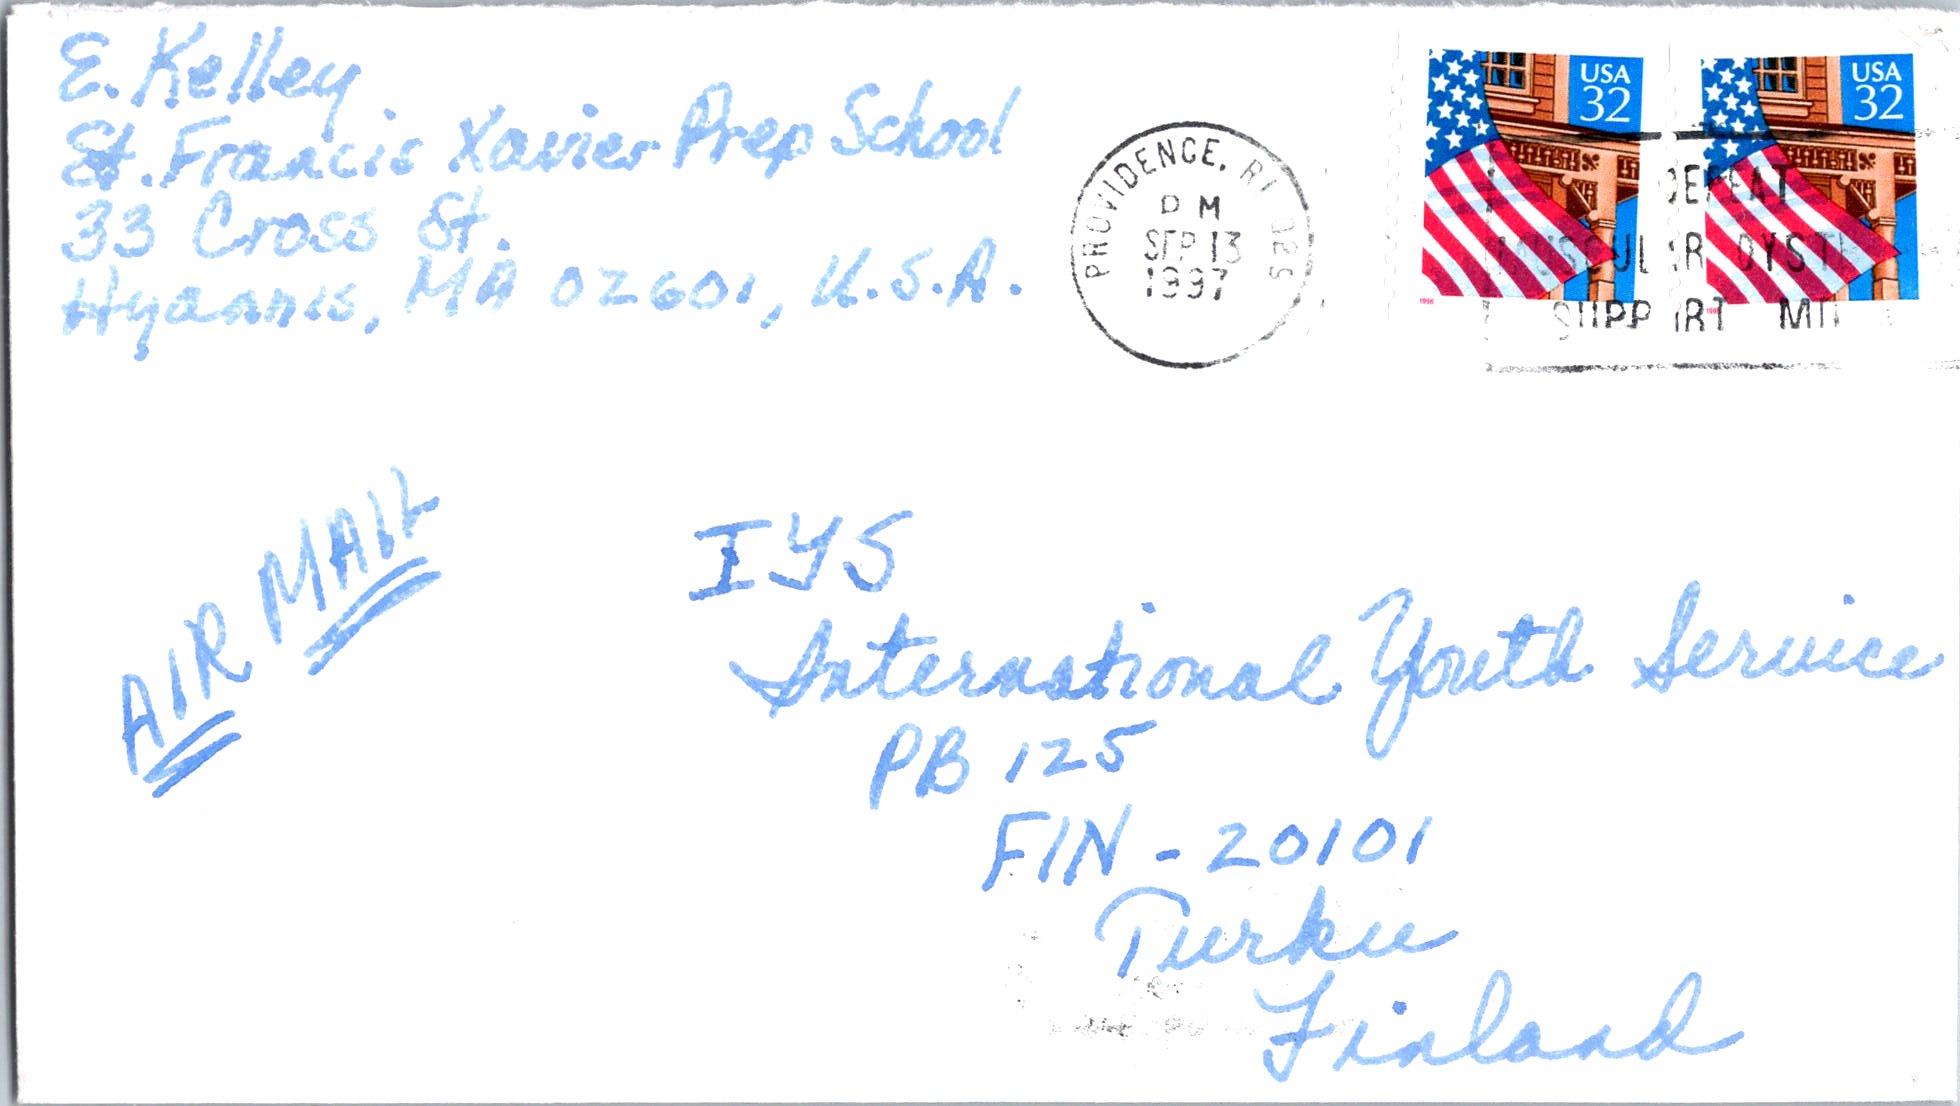 E. Kelley
St. Francis Xavier Prep School
33 Cross St.
Hyannis, MA 02601, U.S.A.
PROVIDENCE, RI 029
PM
SEP 13
1997
USA
32
USA
32
1996
1996
DEFEAT
MUSCULAR DYST
SUPPORT
AIR MAIL
IYS
International Youth Service
PB 125
FIN - 20101
Turku
Finland